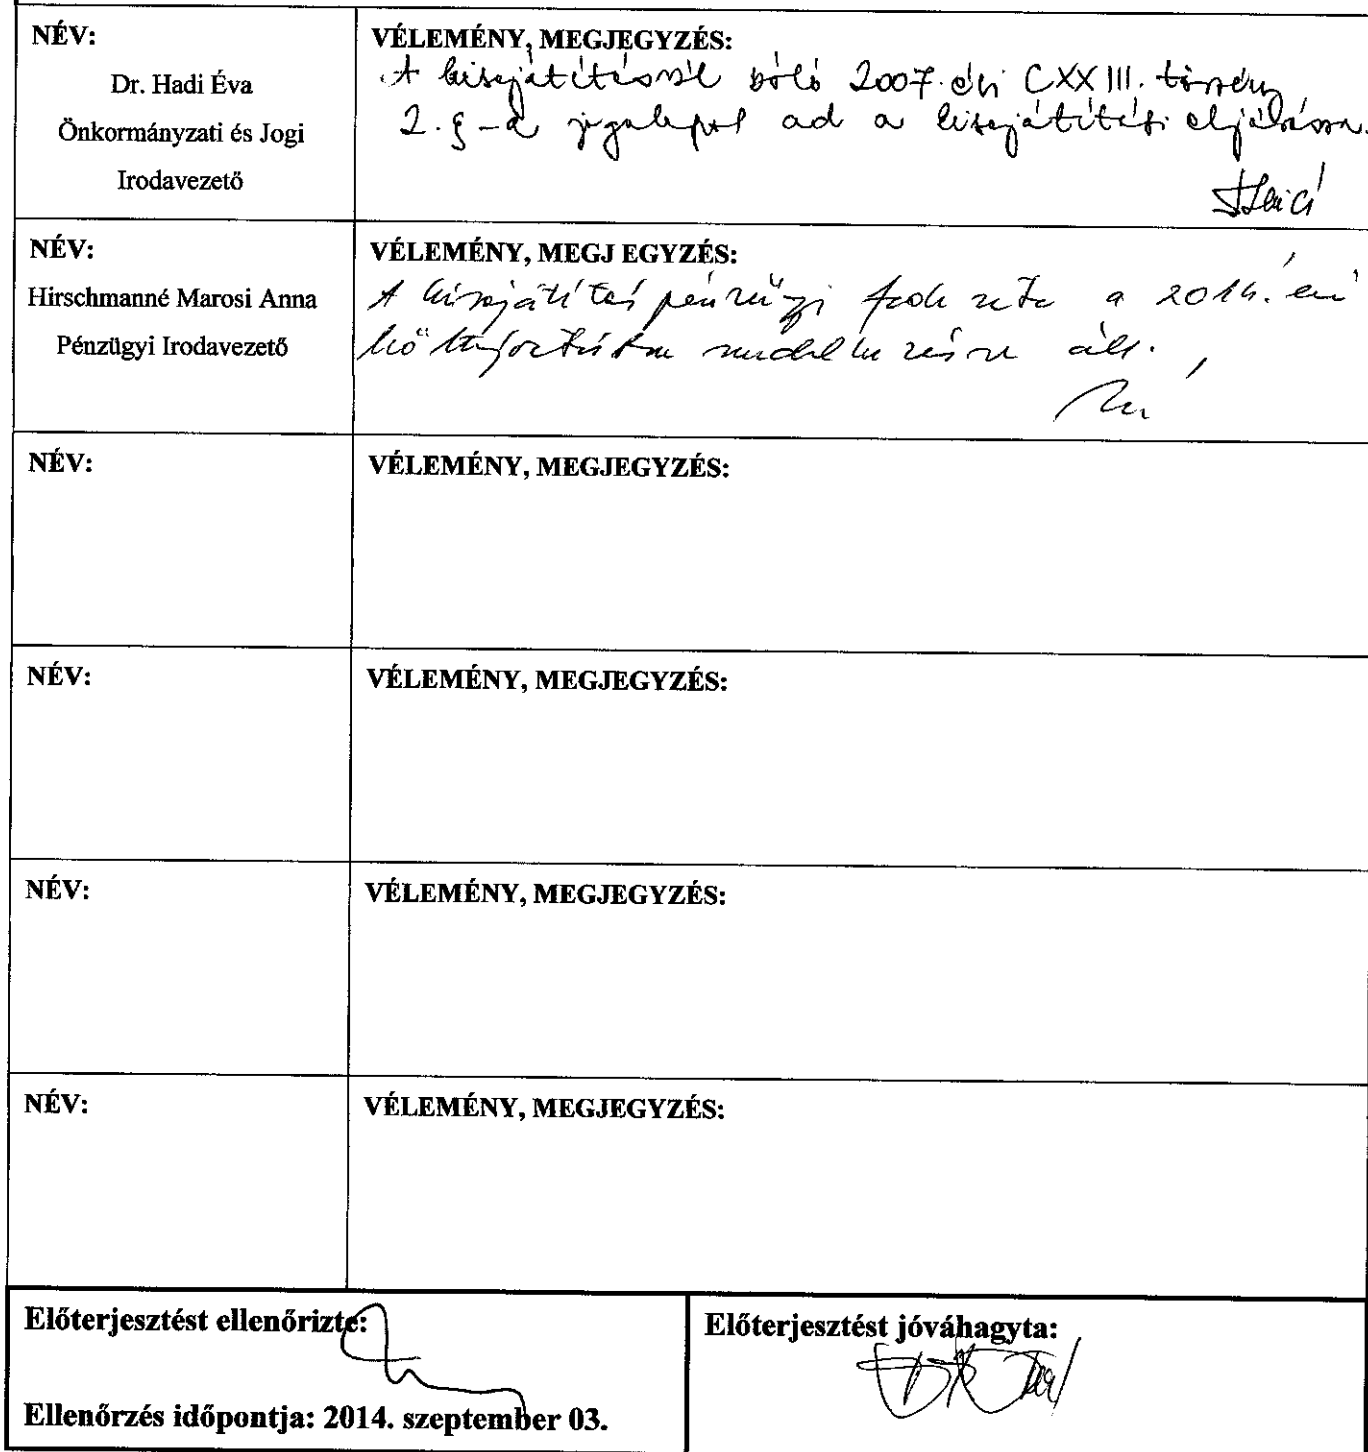 NÉV:
Dr. Hadi Éva
Önkormányzati és Jogi
Irodavezető
VÉLEMÉNY, MEGJEGYZÉS:
A kisajátításról szóló 2007. évi CXXIII. törvény
2. §-a jogalapot ad a kisajátítási eljárásra.
NÉV:
Hirschmanné Marosi Anna
Pénzügyi Irodavezető
VÉLEMÉNY, MEGJ EGYZÉS:
A kisajátítás pénzügyi fedezete a 2014. évi
költségvetésben rendelkezésre áll.
NÉV:
VÉLEMÉNY, MEGJEGYZÉS:
NÉV:
VÉLEMÉNY, MEGJEGYZÉS:
NÉV:
VÉLEMÉNY, MEGJEGYZÉS:
NÉV:
VÉLEMÉNY, MEGJEGYZÉS:
Előterjesztést ellenőrizte:
Ellenőrzés időpontja: 2014. szeptember 03.
Előterjesztést jóváhagyta: